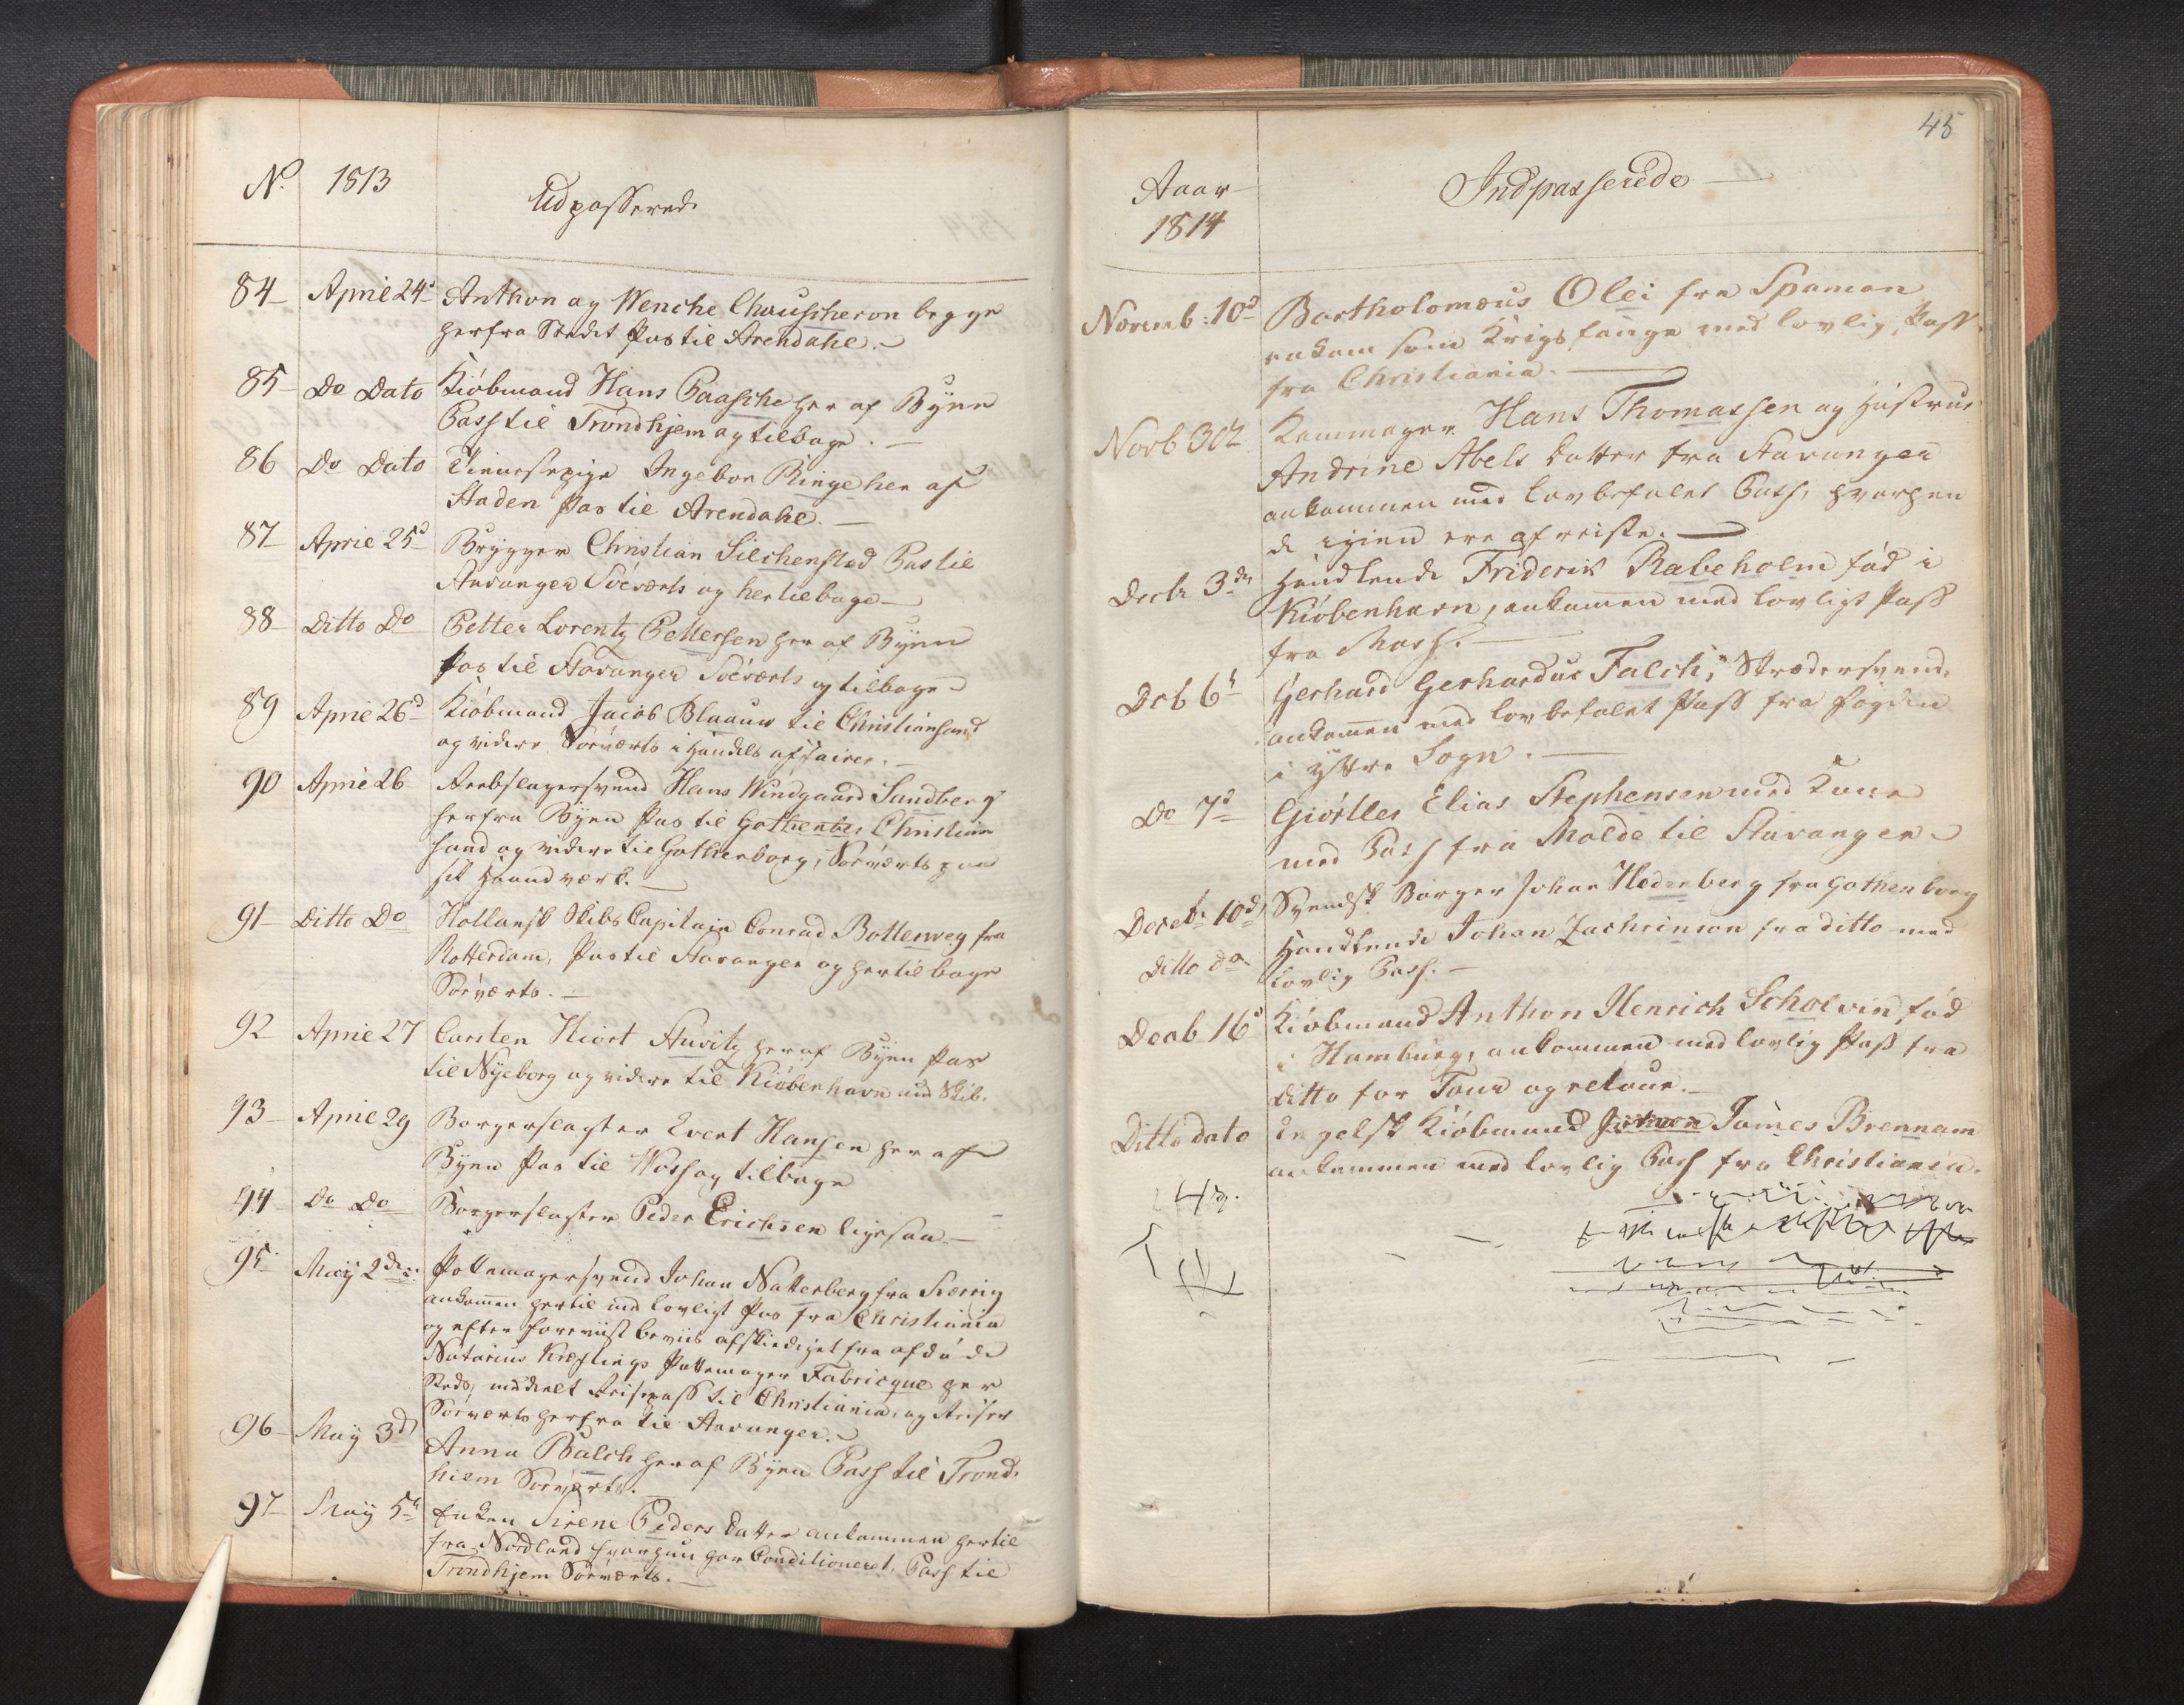 N. 1813 Udpasserede
84 April 24d Anthon og Wenche Chauscheron begge
herfra Stædet Pas til Arendahl.
85 Do Dato Kiöbmand Hans Paasche her af Byen
Pass til Trondhjem og tilbage.
86 Do Dato Tienestepige Ingebor Ringe her af
Staden Pas til Arendahl.
87 April 25d Brygger Christian Silchenstad Pas til
Stavanger Söeværts og her tilbage
88 Ditto Do Petter Lorentz Pettersen her af Byen
Pas til Stavanger Söeværts og tilbage
89 April 26d Kiöbmand Jacob Blaauw til Christiansand
og videre Söeværts i Handels affairer.
90 April 26 Reebslagersvend Hans Windgaard Sundberg
herfra Byen Pas til Gothenber Christian
sand og videre til Gothenborg, Söeværts paa
sit Haandværk.
91 Ditto Do Hollansk Skibs Capitain Conrad Bottenveg fra
Rotterdam, Pas til Stavanger og her tilbage
Söeværts.
92 April 27 Carsten Hiort Stuvitz her af Byen Pas
til Nyeborg og videre til Kiöbenhavn med Skib.
93 April 29 Borgerslagter Evert Hansen her af
Byen Pas til Voss og tilbage
94 Do Do Borgerslagter Peder Erichsen ligesaa
95 May 2den Pottemagersvend Johan Natterberg fra Sverrig
ankommen hertil med lovligt Pas fra Christiania
og efter foreviist beviis afskediget fra afdöde
Notarius Kræftings Pottemager Fabricque her
Steds, meddeelt Reisepass til Christiania, og Reiser
Söeværts herfra til Stavanger.
96 May 3d Anna Balch her af Byen Pass til Trond-
hiem Söeværts.
97 May 5te Enken Sirene Peders Datter ankommen hertil
fra Nordland hvor hun har Conditioneret, Pass til
Trondhjem Söeværts.
45
Aaar 1814 Indpasserede
Novemb: 10d Bartholomæus Olei fra Spanien
ankom som Krigsfange med lovlig Pass
fra Christiania.
Novb 30t Kammager Hans Thomassen og Hustrue
Andrine Abels Datter fra Stavanger
ankommen med lovbefalet Pass, hvorhen
de igien ere afreiste.
Decbr 3de Handlende Friderik Rabeholm föd i
Kiöbenhavn, ankommen med lovligt Pass
fra Moss.
Dcb 6te Gerhard Gerhardus Falch, Skrædersvend,
ankommen med lovbefalet Pass fra fogden
i yttre Sogn.
Do 7d Giörtler Elias Stephensen med Kone
med Pass fra Molde til Stavanger
Decebr 10d Svendsk Borger Johan Hedenberg fra Gothenborg
Ditto do Handlende Johan Zachrinson fra ditto med
lovlig Pass.
Decb 16d Kiöbmand Anthon Henrich Scholvin, föd
i Hamburg, ankommen med lovlig Pass fra
ditto for Tour og retour.
Ditto dato Engelsk Kiöbmand James Brennam
ankommen med lovlig Pass fra Christiania.